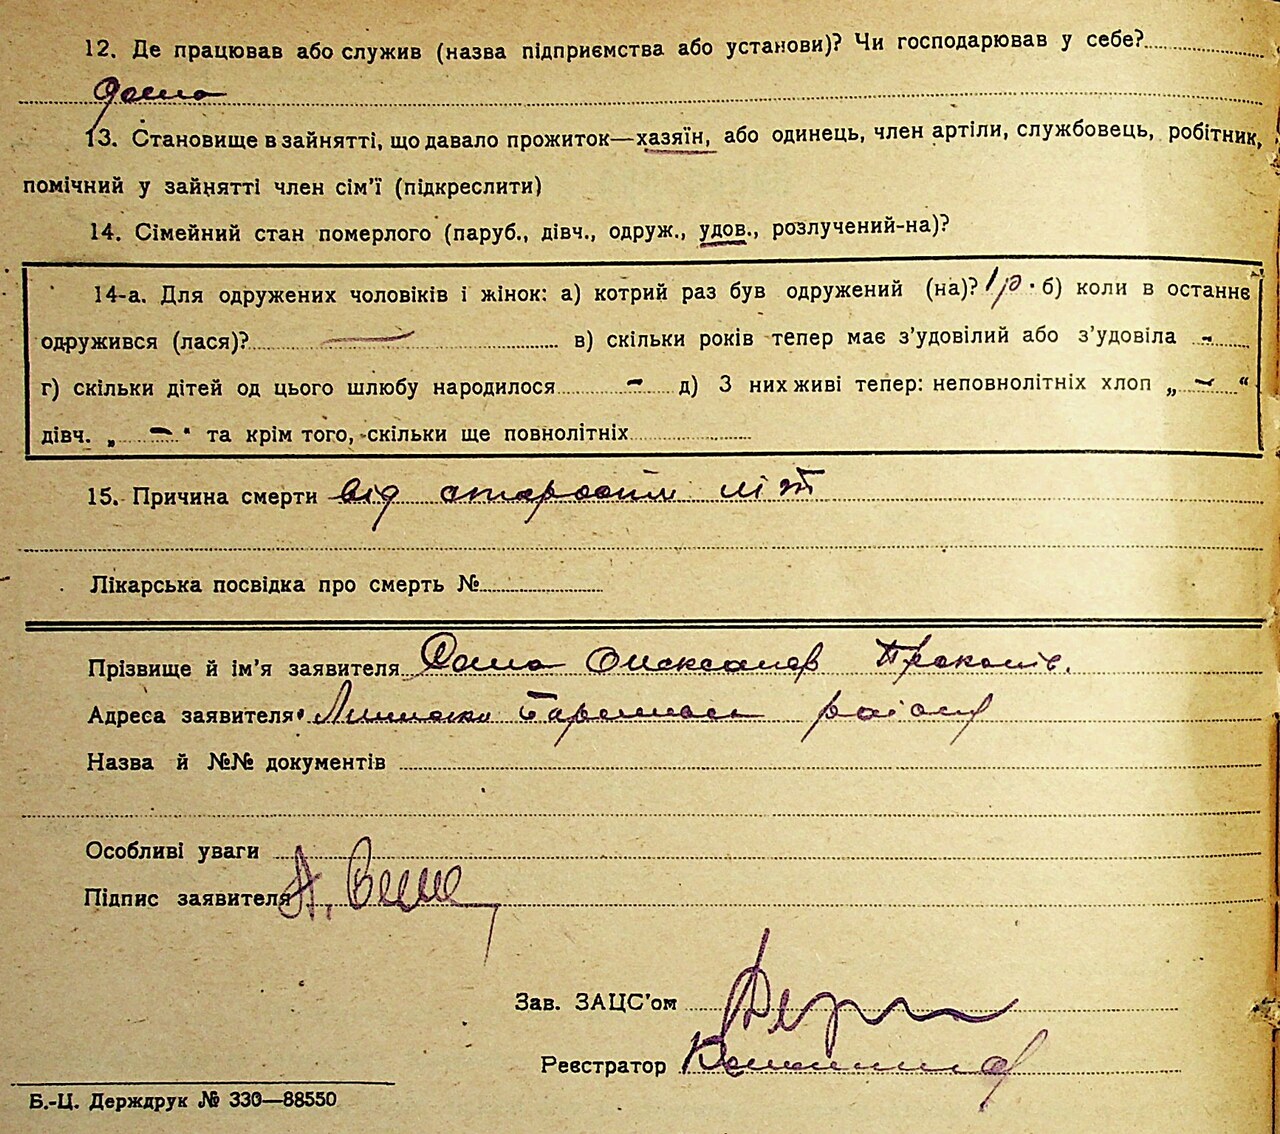 12. Де працював або служив (назва підприємства або установи)? Чи господарював у себе?
дома
13. Становище в зайнятті, що давало прожиток—хазяїн, або одинець, член артіли, службовець, робітник,
помічний у зайнятті член сім'ї (підкреслити)
14. Сімейний стан померлого (паруб., дівч., одруж., удов., розлучений-на)?
14-а. Для одружених чоловіків і жінок: а) котрий раз був одружений (на)? 1 р. б) коли в останнє
одружився (лася)? — в) скільки років тепер має з'удовілий або з'удовіла -
г) скільки дітей од цього шлюбу народилося - д) З них живі тепер: неповнолітніх хлоп „ - “
дівч. „ - “ та крім того, скільки ще повнолітніх
15. Причина смерти від старости літ
Лікарська посвідка про смерть №
Прізвище й ім'я заявителя Олександр
Адреса заявителя району
Назва й №№ документів
Особливі уваги
Підпис заявителя А.
Зав. ЗАЦС'ом
Реєстратор
Б.-Ц. Держдрук № 330—88550